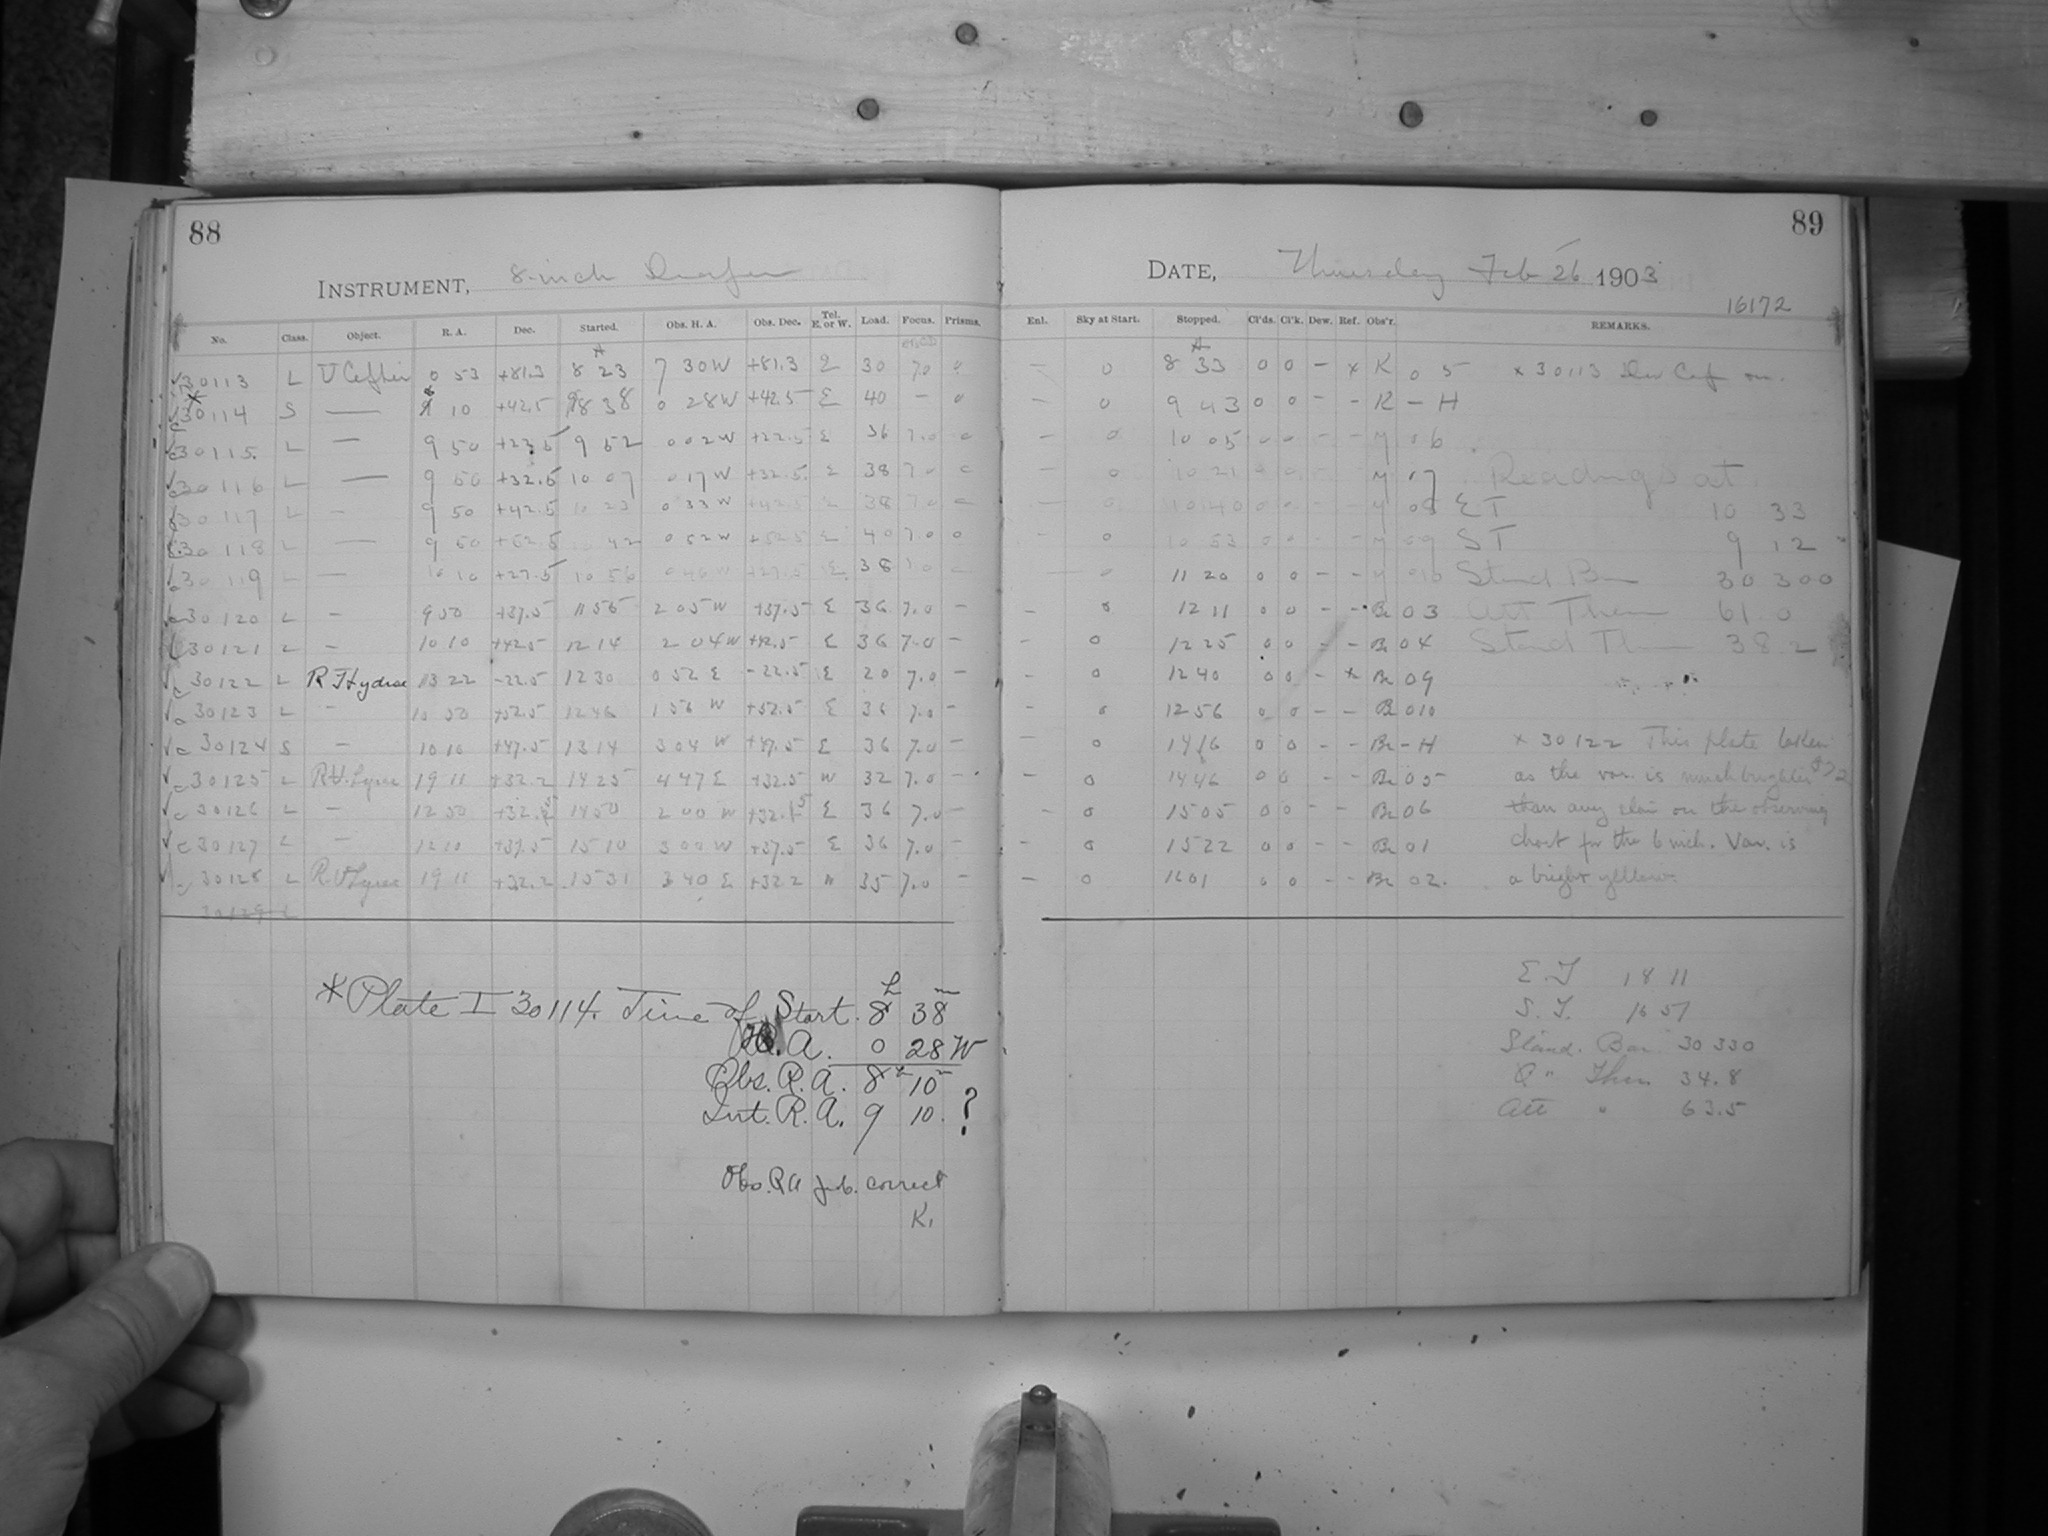 88
INSTRUMENT, 8-inch Draper
No. Class. Object. R. A. Dec. Started. Obs. H. A. Obs. Dec. Tel. E. or W. Load. Focus. Prisms.
30113 L U Cephei 0 53 +81.3 8 23 7 30 W +81.3 E 30 7.0 0
30114 S — 8 10 +42.5 8 38 0 28 W +42.5 E 40 – 0
30115 L — 9 50 9 52 0 02 W +22.5 E 36 7.0 0
30116 L — 9 50 +32.5 10 07 0 17 W +32.5 E 38 7.0 0
30117 L — 9 50 +42.5 10 23 0 33 W +42.5 E 38 7.0
30118 L — 9 50 +52.5 42 0 52 W +52.5 E 40 7.0 0
30119 L — 10 10 +27.5 10 56 0 46 W +27.5 E 38 7.0 –
30120 L — 9 50 +37.5 11 55 2 05 W +37.5 E 36 7.0 –
30121 L — 10 10 +42.5 12 14 2 04 W +42.5 E 36 7.0 –
30122 L R Hydrae 13 22 -22.5 12 30 0 52 E -22.5 E 20 7.0 –
30123 L — 10 50 +52.5 12 46 1 56 W +52.5 E 36 7.0 –
30124 S — 10 10 +47.5 13 14 3 04 W +47.5 E 36 7.0 –
30125 L Lyrae 19 11 +32.2 14 25 4 47 E +32.5 W 32 7.0 –
30126 L — 12 50 14 50 2 00 W E 36 7.0 –
30127 L — 12 10 +37.5 15 10 3 00 W +37.5 E 36 7.0 –
30128 L Lyrae 19 11 +32.2 15 31 3 40 E +32.2 W 35 7.0 –
30129 L
* Plate I 30114. Time of Start. 8h 38m
H. A. 0 28 W
Obs. R. A. 8h 10m
Int. R. A. 9 10. ?
Obs. RA prob. correct
K.
89
DATE, Thursday Feb 26 1903
16172
Enl. Sky at Start. Stopped. Cl'ds. Cl'k. Dew. Ref. Obs'r. REMARKS.
— 0 8 33 0 0 – x K 0 5 x 30113
— 0 9 43 0 0 – – K – H
— 0 10 05 0 0 – – 06
— 0 10 21 0 0 – – 07 Readings at
— 0 10 40 0 0 – – 08 E T 10 33
— 0 10 53 0 0 – – 09 S T 9 12
— 0 11 20 0 0 – – 010 Stand Bar 30 300
— 0 12 11 0 0 – – Br 03 Att Them 61.0
— 0 12 25 0 0 – – Br 04 Stand Them 38.2
— 0 12 40 0 0 – x Br 09
— 0 12 56 0 0 – – Br 010
— 0 14 16 0 0 – – Br – H x 30122 This plate taken
— 0 14 46 0 0 – – Br 05 as the var. is much brighter
— 0 15 05 0 0 – – Br 06 than any star on the observing
— 0 15 22 0 0 – – Br 01 chart for the 6 inch. Var. is
— 0 16 01 0 0 – – Br 02. a bright yellow.
E. T 18 11
S. T. 16 51
Stand. Bar 30 330
" Ther 34.8
Att " 63.5